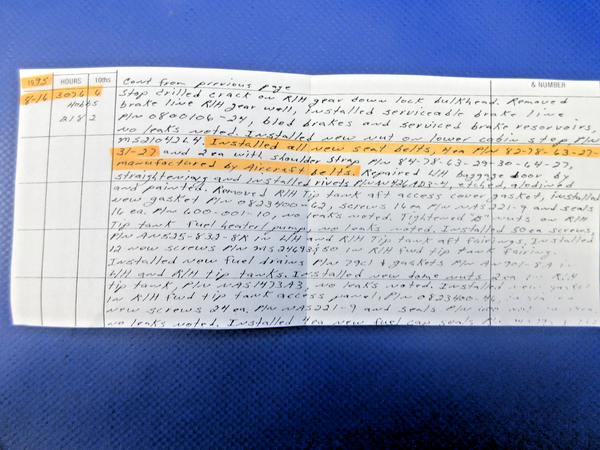 1995 HOURS 10ths & NUMBER
Cont from previous page
8-16 3076 6 Stop drilled crack on R/H gear down lock bulkhead. Removed
Hobbs brake line R/H gear well, installed serviceable brake line
218 2 P/N 0800106-24, bled brakes and serviced brake reservoirs,
no leaks noted. Installed new nut on lower cabin step P/N
MS21042L4. Installed all new seat belts, 4ea P/N 82-78-63-27-
31-27 and 2ea with shoulder strap P/N 84-78-63-29-30-64-27,
manufactured by Aircraft belts. Repaired L/H baggage door by
straightening and installed rivets P/N AN426AD3-4, etched, alodined
and painted. Removed R/H Tip tank aft access cover gasket, installed
new gasket P/N 0823400-62, screws 16 ea P/N NAS221-9 and seals
16 ea. P/N 600-001-10, no leaks noted. Tightened "B" nuts on R/H
Tip tank fuel heater/pump, no leaks noted. Installed 50 ea screws,
P/N AN525-832-8R in L/H and R/H Tip tank aft fairings. Installed
12 new screws P/N on R/H fwd tip tank fairing.
Installed new fuel drains P/N & gaskets P/N in
L/H and R/H tip tanks. Installed new dome nuts 2ea in R/H
tip tank, P/N NAS1473A3, no leaks noted. Installed new gasket
in R/H fwd tip tank access panel, P/N 0823400-
new screws 24 ea. P/N NAS221-9 and seals P/N
no leaks noted. Installed 4ea new fuel cap seals